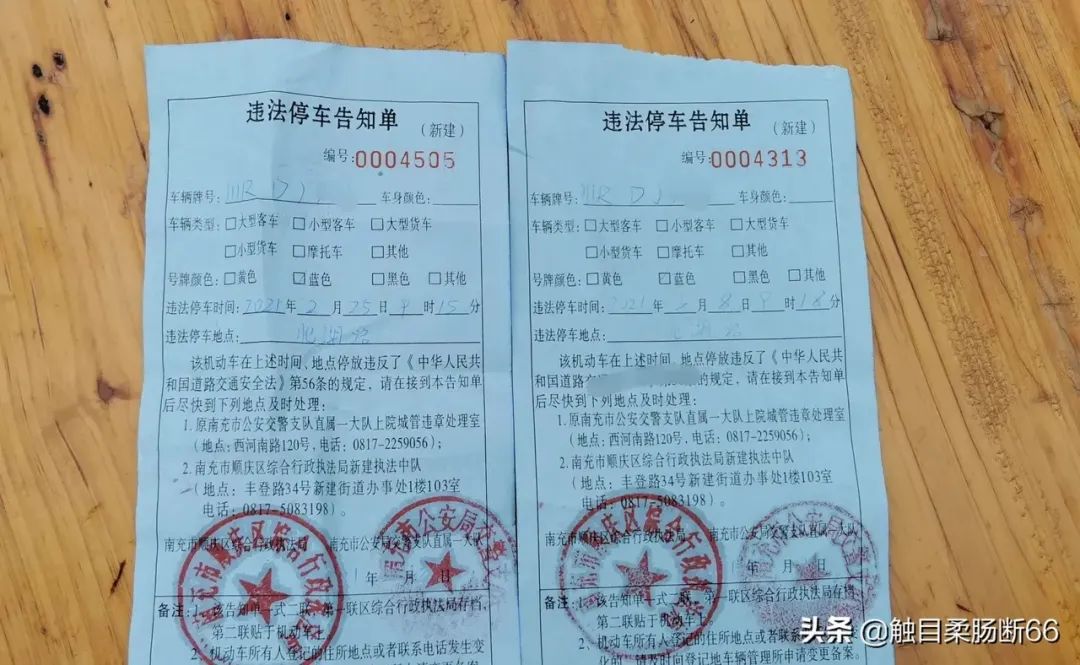 违法停车告知单 (新建)
编号:0004505
车辆牌号: 川R DJ 车身颜色:
车辆类型:□大型客车 □小型客车 □大型货车
□小型货车 □摩托车 □其他
号牌颜色:□黄色 ☑蓝色 □黑色 □其他
违法停车时间:2021年2月25日9时15分
违法停车地点:
该机动车在上述时间、地点停放违反了《中华人民共
和国道路交通安全法》第56条的规定,请在接到本告知单
后尽快到下列地点及时处理:
1.原南充市公安交警支队直属一大队上院城管违章处理室
(地点:西河南路120号,电话:0817-2259056);
2.南充市顺庆区综合行政执法局新建执法中队
(地点:丰登路34号新建街道办事处1楼103室
电话:0817-5083198)。
南充市顺庆区综合行政执法局 南充市公安局交警支队直属一大队
年 月 日
备注:1、该告知单一式二联、第一联区综合行政执法局存档,
第二联贴于机动车上
2、机动车所有人登记的住所地点或者联系电话发生变
违法停车告知单 (新建)
编号:0004313
车辆牌号: 川R DJ 车身颜色:
车辆类型:□大型客车 □小型客车 □大型货车
□小型货车 □摩托车 □其他
号牌颜色:□黄色 ☑蓝色 □黑色 □其他
违法停车时间:2021年 月8日9时18分
违法停车地点:
该机动车在上述时间、地点停放违反了《中华人民共
和国道路 的规定,请在接到本告知单
后尽快到下列地点及时处理:
1.原南充市公安交警支队直属一大队上院城管违章处理室
(地点:西河南路120号,电话:0817-2259056);
2.南充市顺庆区综合行政执法局新建执法中队
(地点:丰登路34号新建街道办事处1楼103室
电话:0817-5083198)。
南充市顺庆区综合行政执法局 南充市公安局交警支队直属一大队
年 月 日
备注:1、该告知单一式二联、第一联区综合行政执法局存档,
第二联贴于机动车上
2、机动车所有人登记的住所地点或者联
化的,请及时向登记地车辆管理所申请变更备案。
头条 @触目柔肠断66